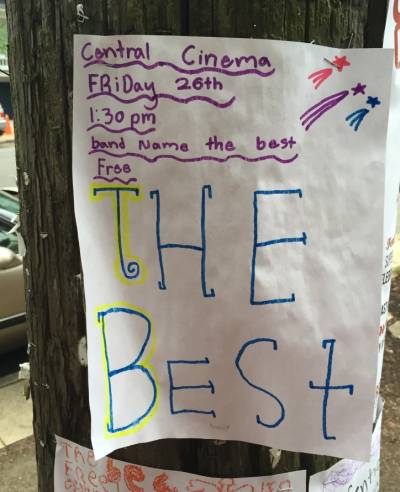 Central Cinema
FRiDay 26th
1:30 pm
band Name the best
Free
THE
BEST
The